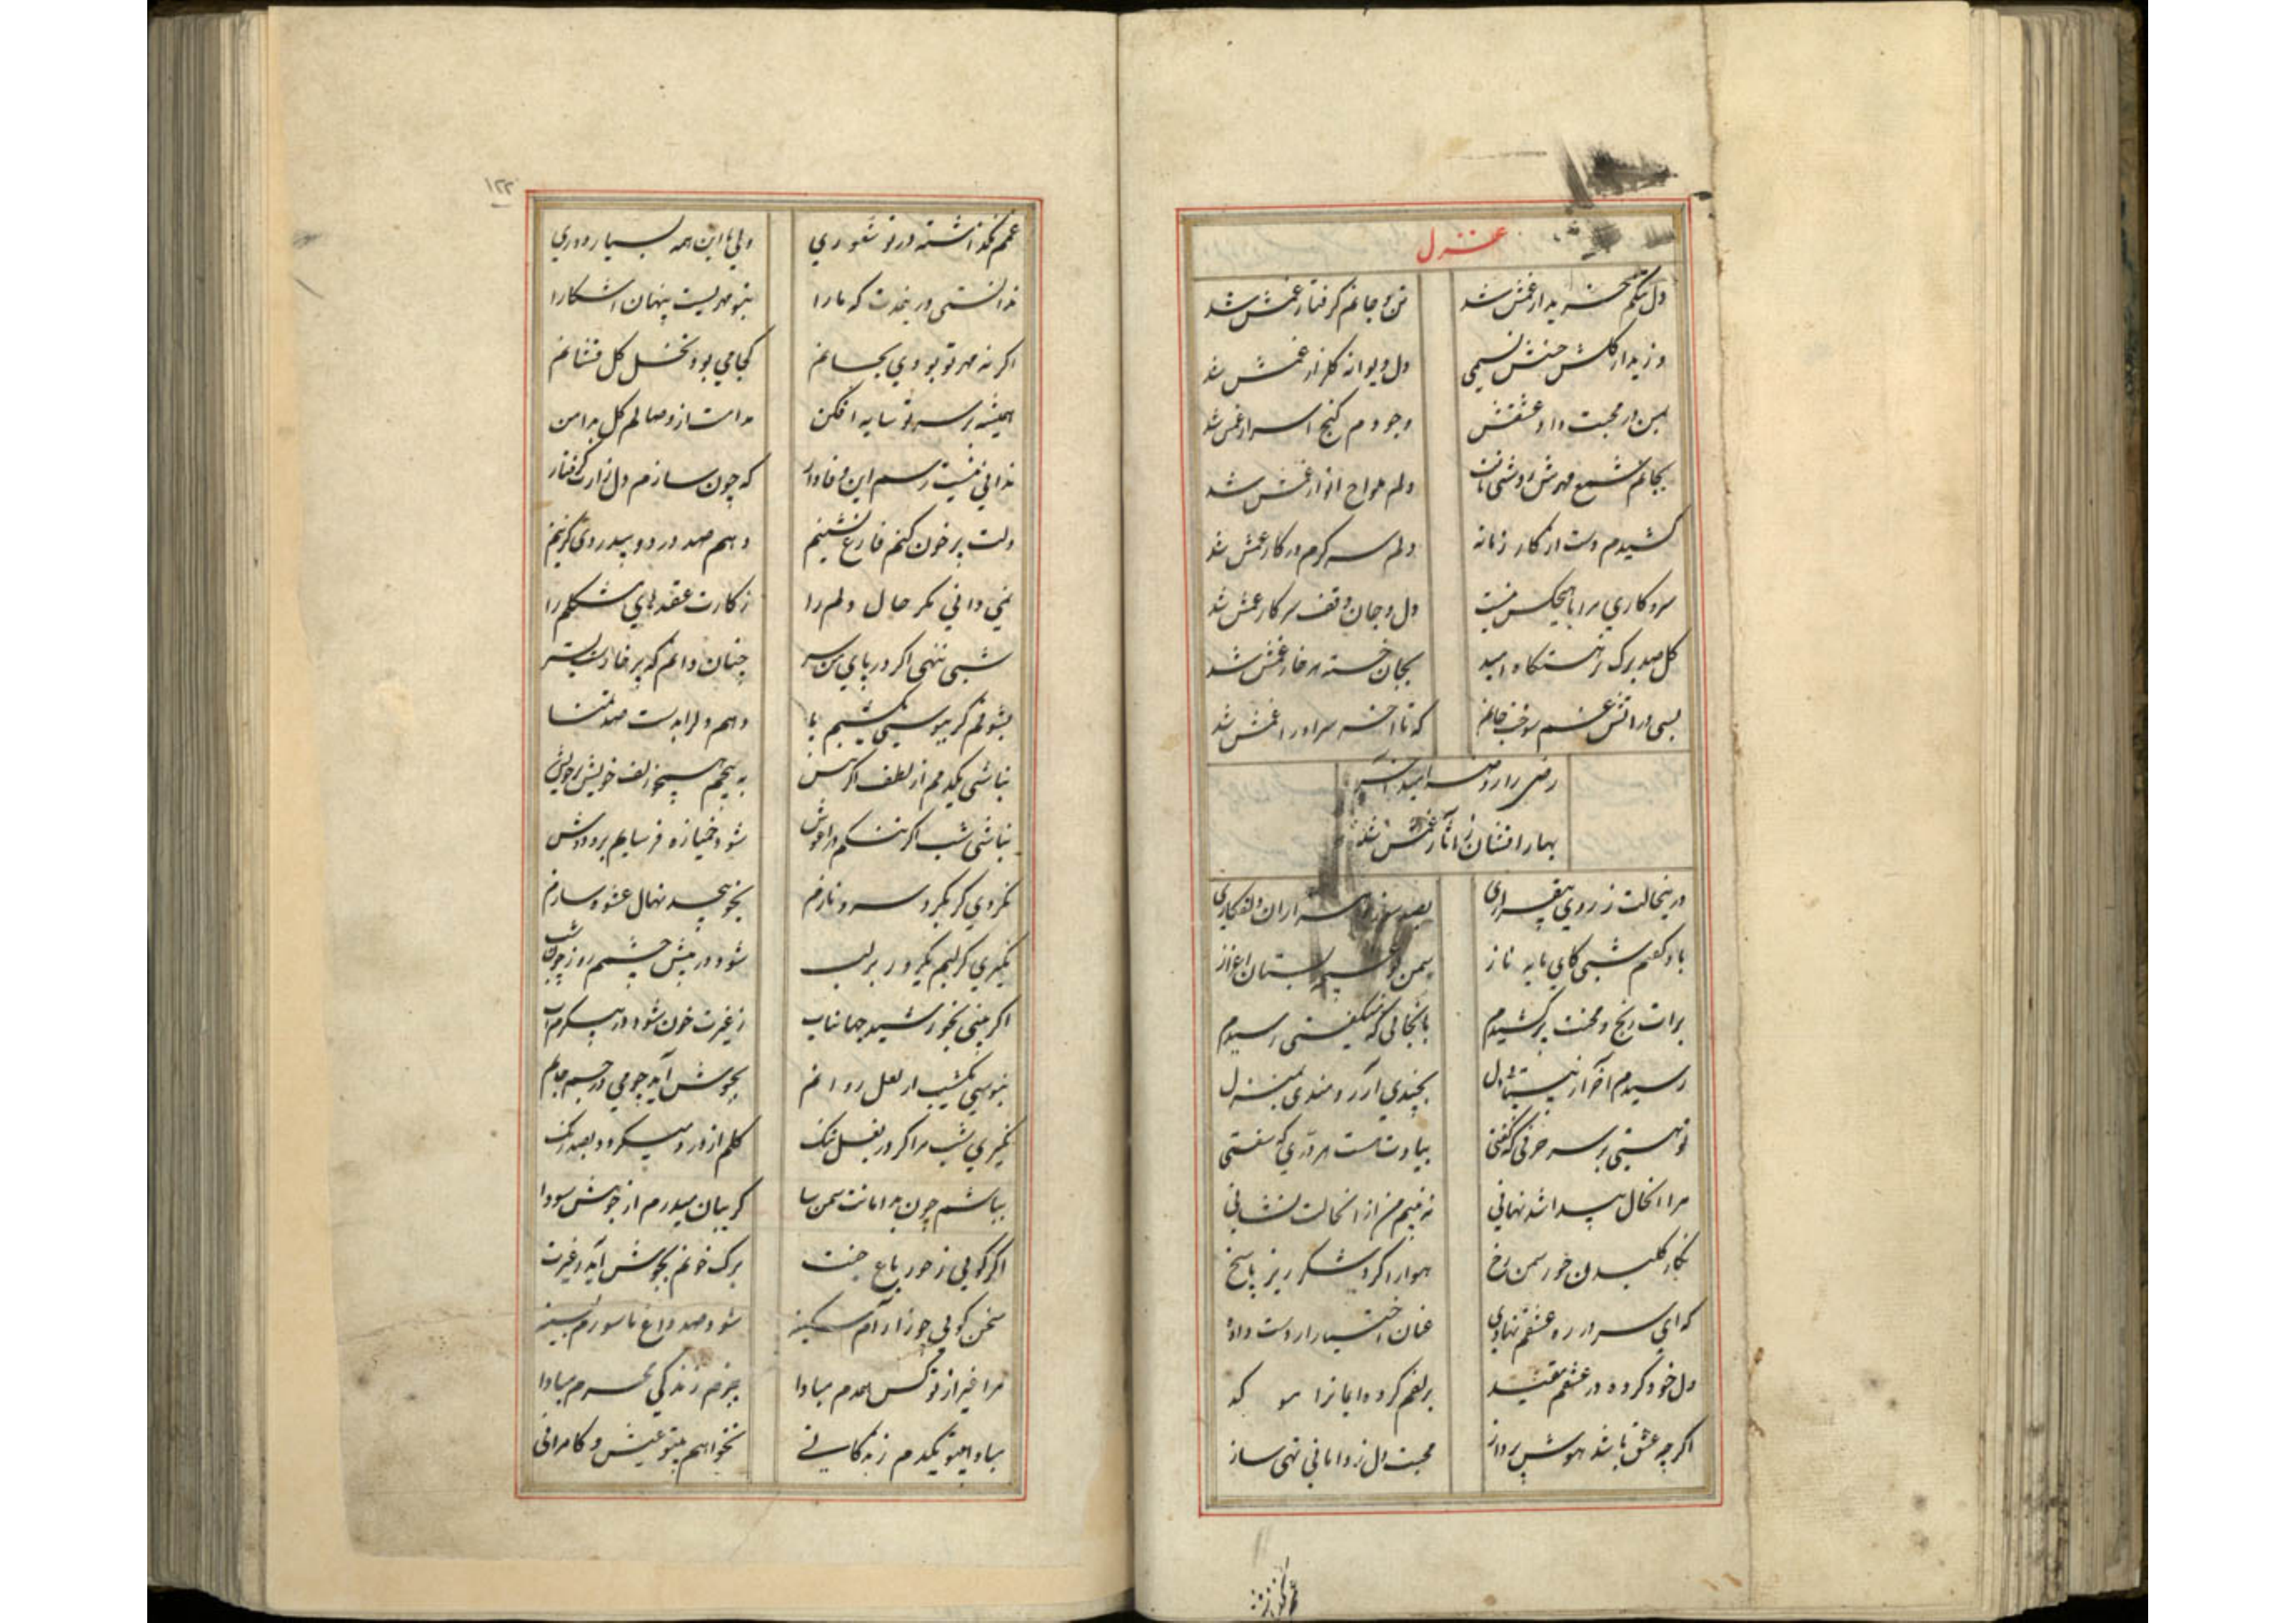 غزل
دل تنگم خریدار غمش شد تن و جانم گرفتار غمش شد
وزید از گلشن حسنش نسیمی دل دیوانه گلزار غمش شد
بمن در محبت داد عشقش وجودم گنج اسرار غمش شد
بجانم شمع مهرش روشنی یافت دلم انوار غمش شد
کشیدم دست از کار زمانه دلم سرگرم در کار غمش شد
سر و کاری مرا با هیچکس نیست دل و جان وقف سرکار غمش شد
گل صد برگ امید بجان خسته هر خار غمش شد
بسی در آتش غم سوخت جانم که تا آخر سزاوار غمش شد
رضی را
بهار افشان ز آثار غمش شد
درینحالت ز روی بیقراری بصد سوز و دلفکاری
باو گفتم شبی کای مایه ناز سمن اعزاز
برات رنج و محنت بر کشیدم بانجائی که میگفتی رسیدم
رسیدم آخر از بیتابی دل بچندین آرزومندی بمنزل
تو هستی بر سر حرفی که گفتی بیادت هست هر دری که سفتی
مرا انحال پیدا شد نهانی نه فهیم من از انحالت نشانی
نگار گلبدن حور سمن رخ هوا را کرد شکر ریز پاسخ
که ای سر در ره عشقم نهاده عنان اختیار از دست داده
دل خود کرده در عشقم مقید بزلفم کرده ایمانرا مو کد
اگر چه عشق باشد هوش پرداز محبت دل ز دانائی تهی ساز
غمم نگذاشته در تو شعوری
۱۲۲
غمم نگذاشته در تو شعوری ولی با این همه بسیار دوری
ندانستی درینمدت که ما را بتو مهریست پنهان آشکارا
اگر نه مهر تو بودی بجانم کجا می بود نخل گل فشانم
همیشه بر سر تو سایه افکن مدامت از وصالم گل بدامن
ندانی نیست رسم این وفادار که چون سازم دل زارت گرفتار
دلت پر خون کنم فارغ نشینم دهم صد درد و بیدردی گزینم
نمی دانی مگر حال دلم را ز کارت عقدهای مشکلم را
شبی ننهی اگر در پای من سر چنان دانم که پر خارست بستر
بشوقم گر نبوسی یکشبم پا دهم دلرا بدست صد تمنا
نباشی یکدم از لطف اگر پیش به پیچم همچو زلف خویش بر خویش
نباشی شب اگر تنگم در آغوش شود خمیازه فرسایم بر و دوش
نگردی گر بگرد سرو نازم بخود پیچد نهال عشوه سازم
نگیری گر لبم یکروز بر لب شود در پیش چشمم روز چون شب
اگر بینی بخورشید جهانتاب ز غیرت خون شود در پیکرم آب
نبوسی یکشب ار لعل روانم بجوش آید چو می در جسم جانم
نگیری شب مرا گر در بغل تنگ گلم از درد میگردد بصد رنگ
نباشم چون بدامانت سمن سا گریبان میدرم از جوش سودا
اگر گویی ز حور باغ جنت برگ خونم بجوش آید ز غیرت
سخن گوئی چو زار آم سکینه شود صد داغ ناسورم بسینه
مرا غیر از تو کس همدم مبادا بجزم زندگی محرم مبادا
مبادا بیتو یکدم زندگانی نخواهم بیتو عیش و کامرانی